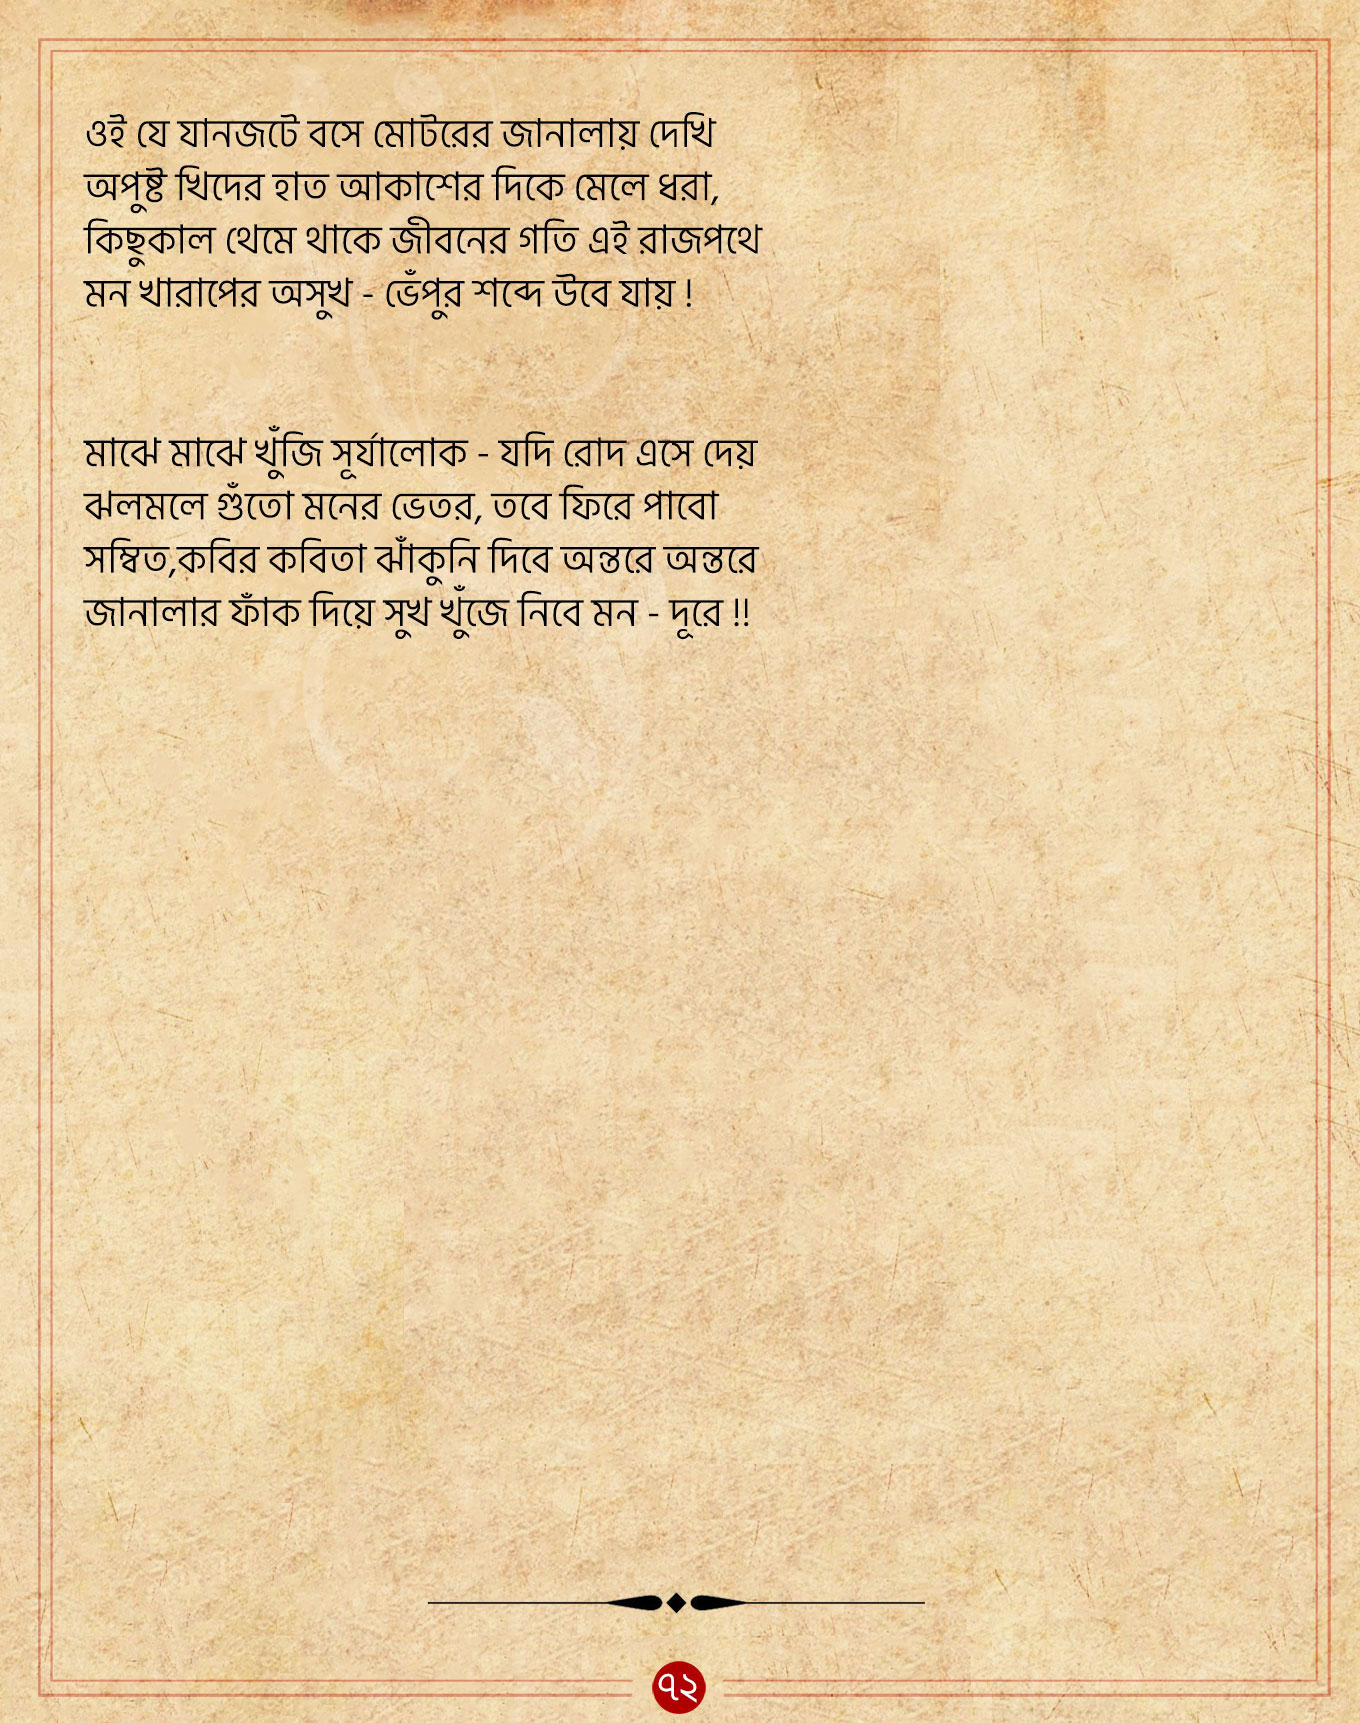 ওই যে যানজটে বসে মোটরের জানালায় দেখি
অপুষ্ট খিদের হাত আকাশের দিকে মেলে ধরা,
কিছুকাল থেমে থাকে জীবনের গতি এই রাজপথে
মন খারাপের অসুখ - ভেঁপুর শব্দে উবে যায় !
মাঝে মাঝে খুঁজি সূর্যালোক - যদি রোদ এসে দেয়
ঝলমলে গুঁতো মনের ভেতর, তবে ফিরে পাবো
সম্বিত,কবির কবিতা ঝাঁকুনি দিবে অন্তরে অন্তরে
জানালার ফাঁক দিয়ে সুখ খুঁজে নিবে মন - দূরে !!
৭২